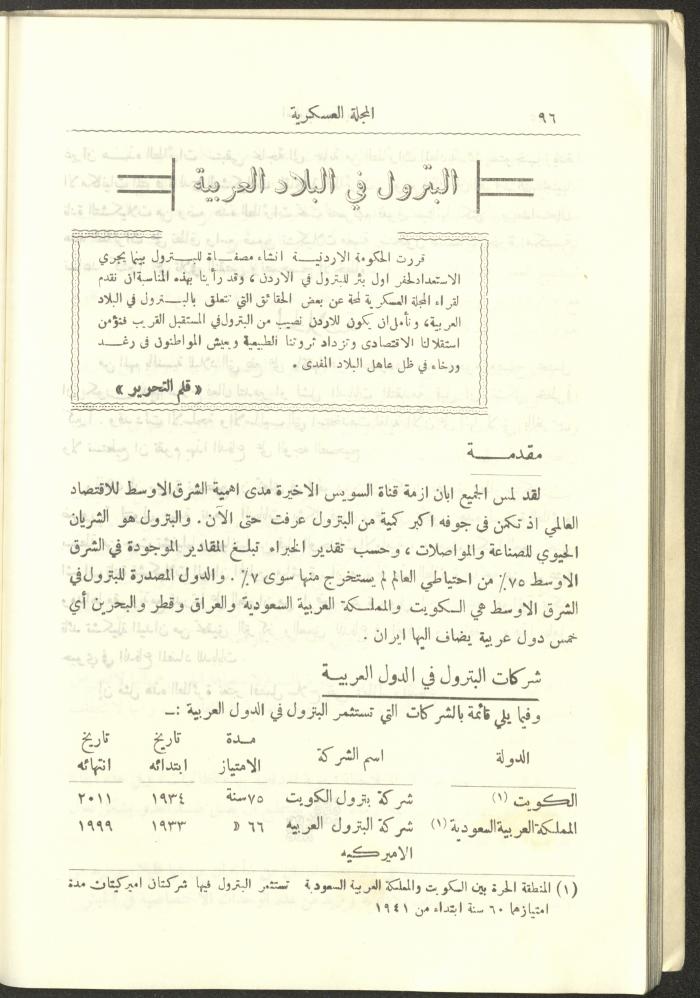 ٩٦
المجلة العسكرية
البترول في البلاد العربية
قررت الحكومة الاردنيـة انشاء مصفـاة للبـترول بينما يجري
الاستعداد لحفر اول بئر للبترول في الاردن ، وقد رأينا بهذه المناسبة ان نقدم
لقراء المجلة العسكرية لمحة عن بعض الحقائق التي تتعلق بالبـترول في البلاد
العربية، ونأمل ان يكون للاردن نصيب من البترول في المستقبل القريب فنؤمن
استقلالنا الاقتصادى وتزداد ثروتنا الطبيعية ويعيش المواطنون فى رغـد
ورخاء في ظل عاهل البلاد المفدى .
« قلم التحرير »
مقدمـة
لقد لمس الجميع ابان ازمة قناة السويس الاخيرة مدى اهمية الشرق الاوسط للاقتصاد
العالمي اذ تكمن فى جوفه اكبر كمية من البترول عرفت حتى الآن . والبترول هو الشريان
الحيوي للصناعة والمواصلات ، وحسب تقدير الخبراء تبلغ المقادير الموجودة في الشرق
الاوسط ٧٥٪ من احتياطي العالم لم يستخرج منها سوى ٧٪ . والدول المصدرة للبترول في
الشرق الاوسط هي الكويت والمملكة العربية السعودية والعراق وقطر والبحرين أي
خمس دول عربية يضاف اليها ايران .
شركات البترول في الدول العربيـة
وفيما يلي قائمة بالشركات التي تستثمر البترول في الدول العربية :ـ
الدولة اسم الشركة مـدة الامتياز تاريخ ابتدائه تاريخ انتهائه
الكويت (١) شركة بترول الكويت ٧٥ سنة ١٩٣٤ ٢٠١١
المملكة العربية السعودية (١) شركة البترول العربيه ٦٦ « ١٩٣٣ ١٩٩٩
الاميركيه
(١) المنطقة الحرة بين الكويت والمملكة العربية السعودية تستثمر البترول فيها شركتان اميركيتان مدة
امتيازهما ٦٠ سنة ابتداء من ١٩٤١